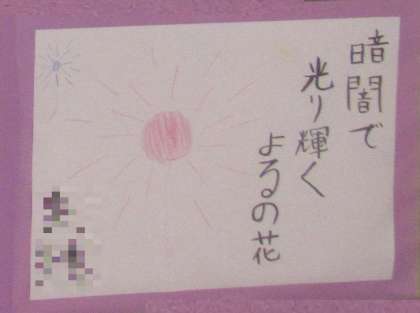 暗闇で
光り輝く
よるの花